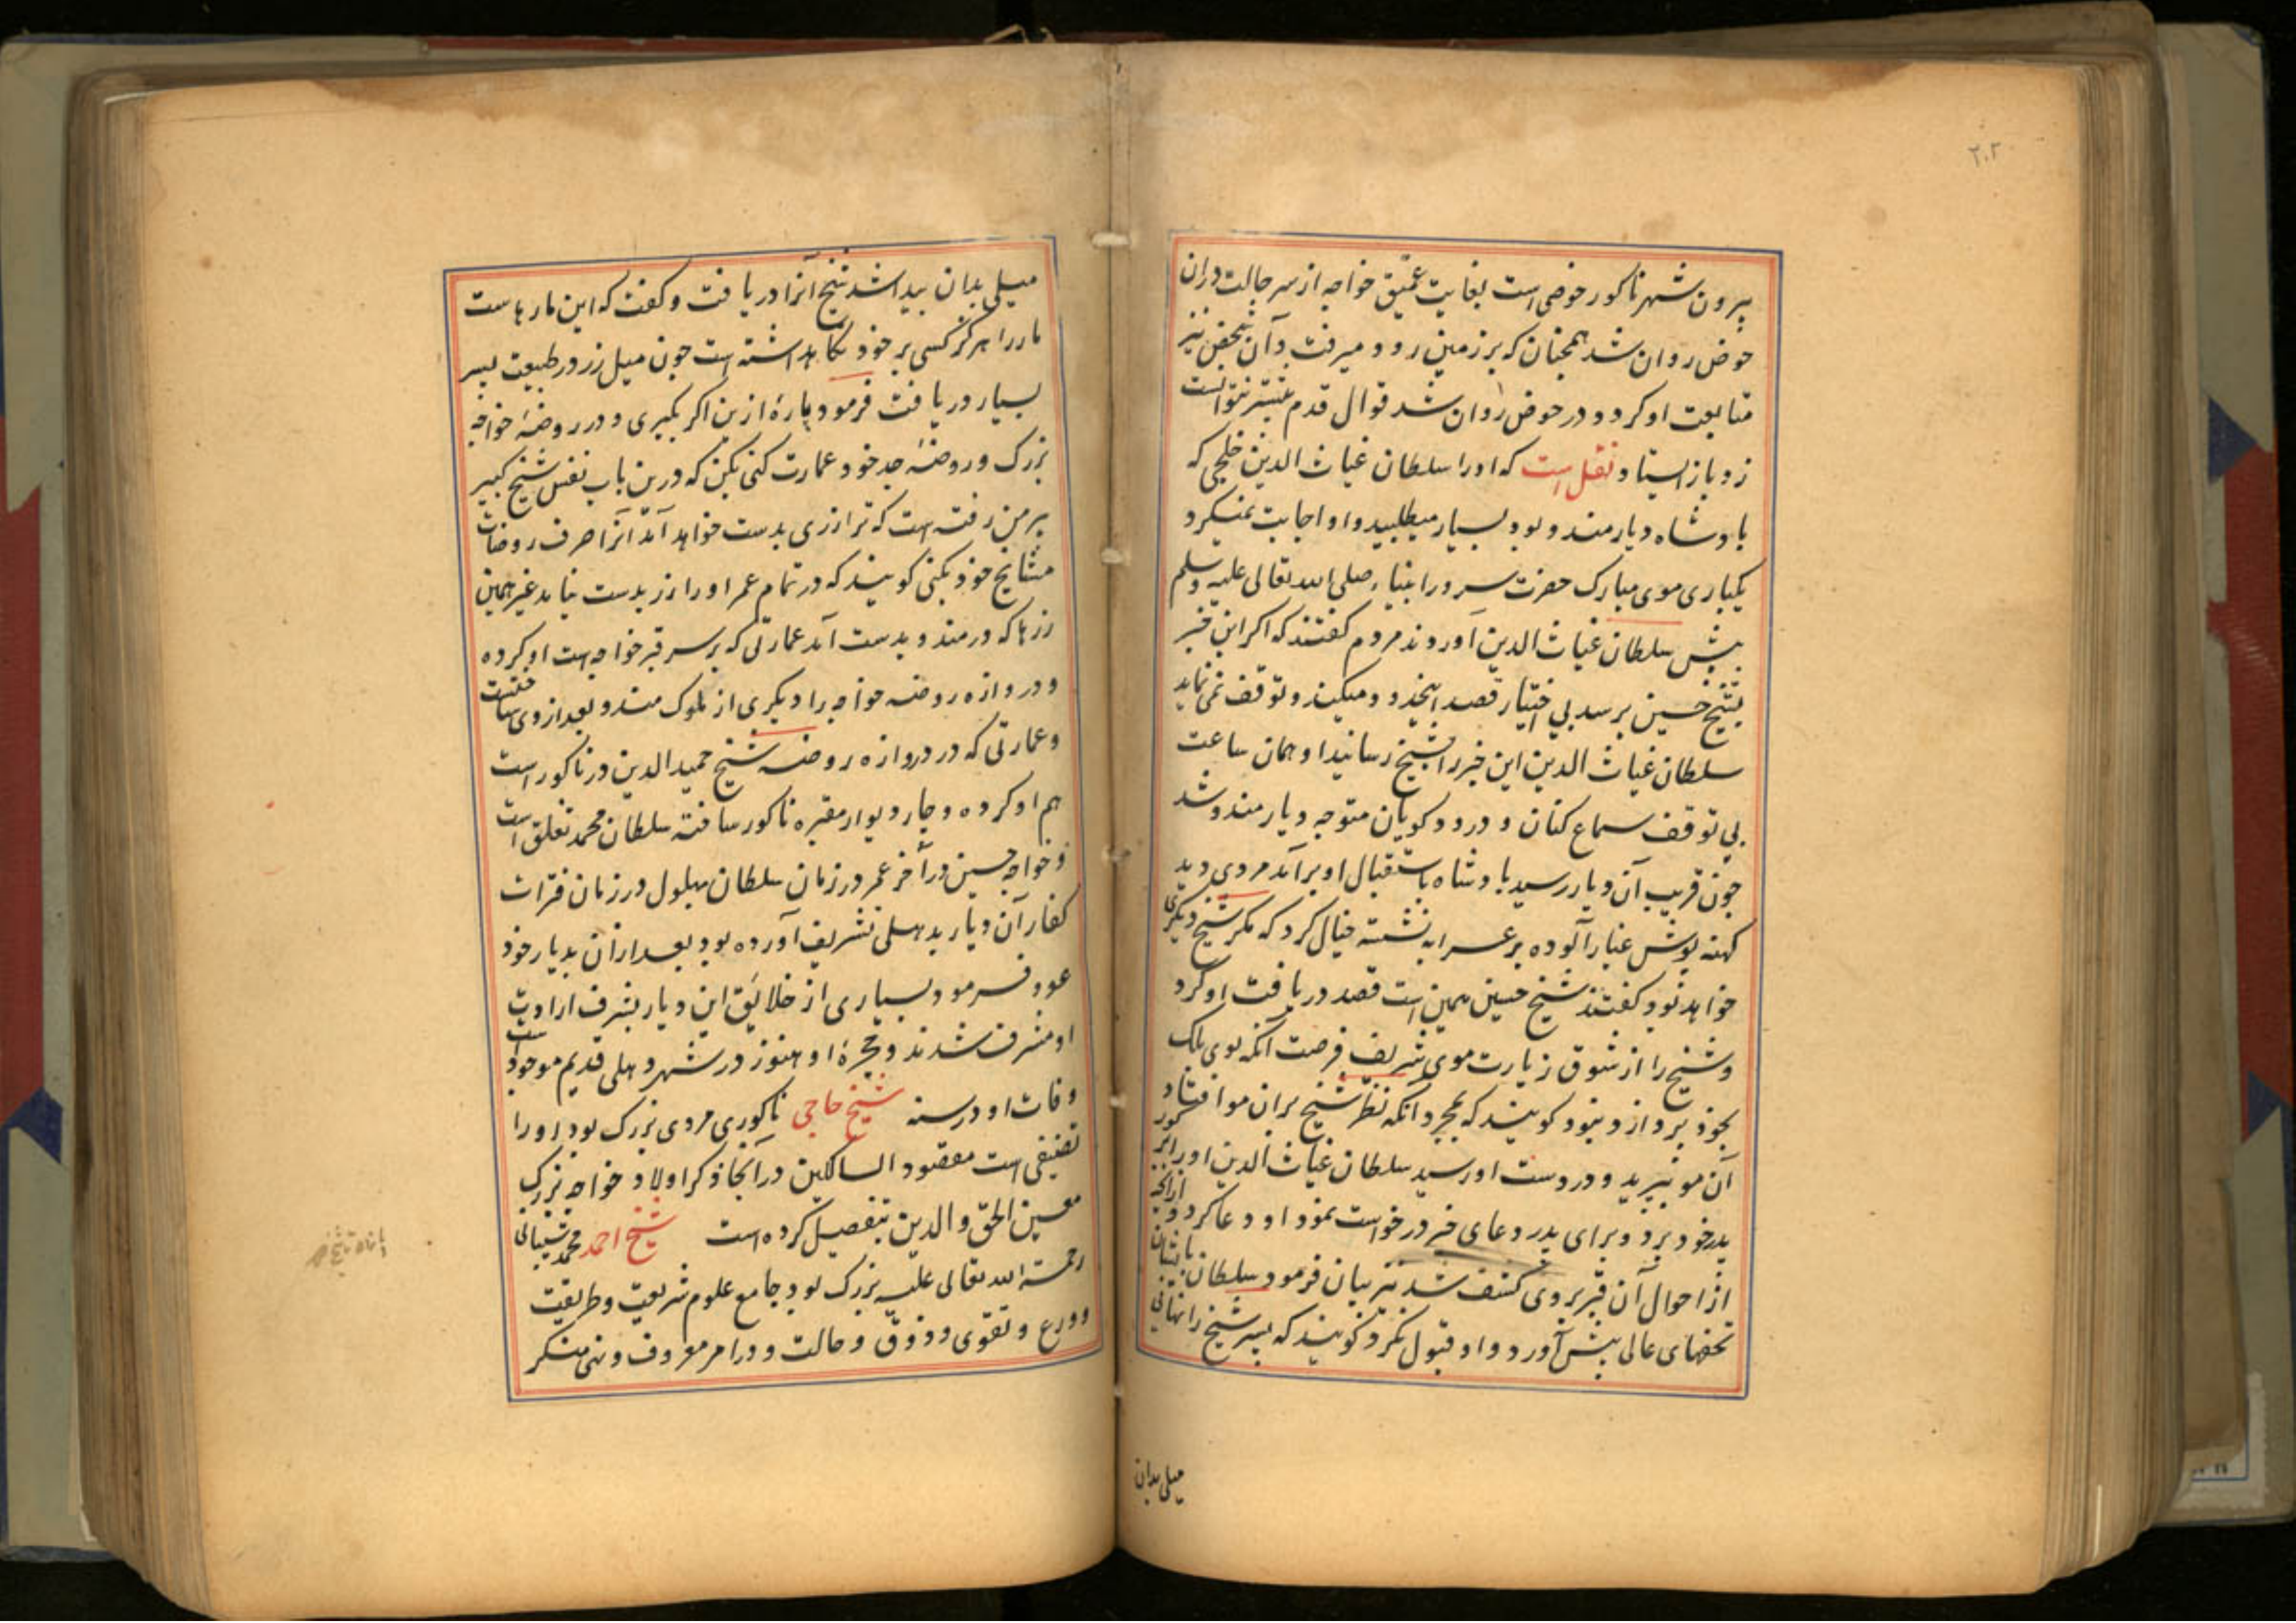 ۲۰۲
بیرون شهر ناکور حوضی است بغایت عمیق خواجه از سر حالت دران
حوض روان شد همچنان که بر زمین رود میرفت و آن شخص نیز
متابعت او کرد و در حوض روان شد قوال قدم پیشتر نتوانست
زد و باز ایستاد و نقل است که او را سلطان غیاث الدین خلجی که
بادشاه دیار مندو بود بسیار میطلبید و او اجابت نمیکرد
یکباری موی مبارک حضرت سرور انبیاء صلی الله تعالی علیه وسلم
پیش سلطان غیاث الدین آوردند مردم کفتند که اکر این خبر
بشیخ حسین برسد بی اختیار قصد اینجا و میکند و توقف نمی نماید
سلطان غیاث الدین این خبر را بشیخ رسانید او همان ساعت
بی توقف سماع کنان و درود کویان متوجه دیار مندو شد
چون قریب آن دیار رسید بادشاه باستقبال او برآمد مردی دید
کهنه پوش غبار آلوده بر عرابه نشسته خیال کرد که مکر شیخ دیکری
خواهد بود کفتند شیخ حسین همین است قصد دریافت او کرد
و شیخ را از شوق زیارت موی شریف فرصت آنکه بوی ملک
بخود پردازد نبود کویند که بمجرد آنکه نظر شیخ بران مو افتاد
آن مو بپرید و در دست او رسید سلطان غیاث الدین او را بر کور
پدر خود برد و برای پدر دعای خیر درخواست نمود او دعا کرد و ازانچه
از احوال آن قبر بروی کشف شد نیز بیان فرمود سلطان بایشان
تحفهای عالی پیش آورد و او قبول نکرد کویند که پسر شیخ را نهانی
میلی بدان
میلی بدان پیدا شد شیخ آنرا دریافت و کفت که این مارهاست
مار را هرکز کسی بر خود نکاهداشته است چون میل زر در طبیعت پسر
بسیار دریافت فرمود پارهٔ ازین اکر بکیری و در روضهٔ خواجه
بزرک و روضهٔ جد خود عمارت کنی بکن که درین باب نفس شیخ کبیر
بر من رفته است که ترا زری بدست خواهد آمد آنرا صرف روضات
مشایخ خود بکنی کویند که در تمام عمر او را زر بدست نیامد غیر همین
زرها که در مندو بدست آمد عمارتی که بر سر قبر خواجه است او کرده
و دروازه روضه خواجه را دیکری از ملوک مندو بعد از وی ساخته است
و عمارتی که در دروازه روضه شیخ حمید الدین در ناکور است
هم او کرده و چار دیوار مقبره ناکور ساخته سلطان محمد تغلق است
و خواجه حسین در آخر عمر در زمان سلطان بهلول در زمان فترات
کفار آن دیار بدهلی تشریف آورده بود بعد ازان بدیار خود
عود فرمود و بسیاری از خلایق این دیار بشرف ارادت
او مشرف شدند و حجرهٔ او هنوز در شهر دهلی قدیم موجود است
وفات او در سنه شیخ حاجی ناکوری مردی بزرک بود او را
تصنیفی است مقصود السالکین در آنجا ذکر اولاد خواجه بزرک
معین الحق والدین بتفصیل کرده است شیخ احمد محمد شیبانی
رحمة الله تعالی علیه بزرک بود جامع علوم شریعت و طریقت
و ورع و تقوی و ذوق و حالت و در امر معروف و نهی منکر